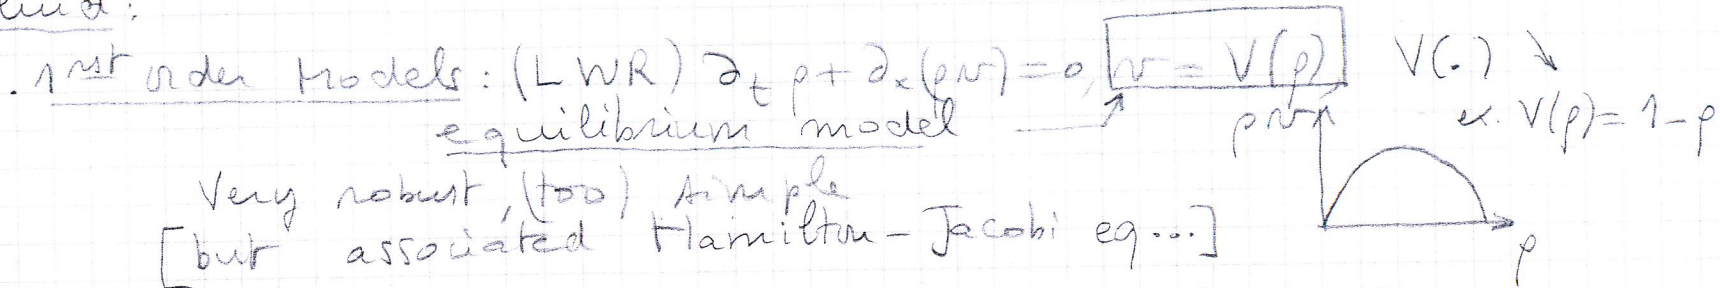 . 1rst order Models : (LWR) ∂_t ρ + ∂_x(ρv) = 0, v = V(ρ) V(.) ↘
equilibrium model → ρv ex. V(ρ) = 1 - ρ
Very robust, (too) simple
[but associated Hamilton-Jacobi eq...] ρ